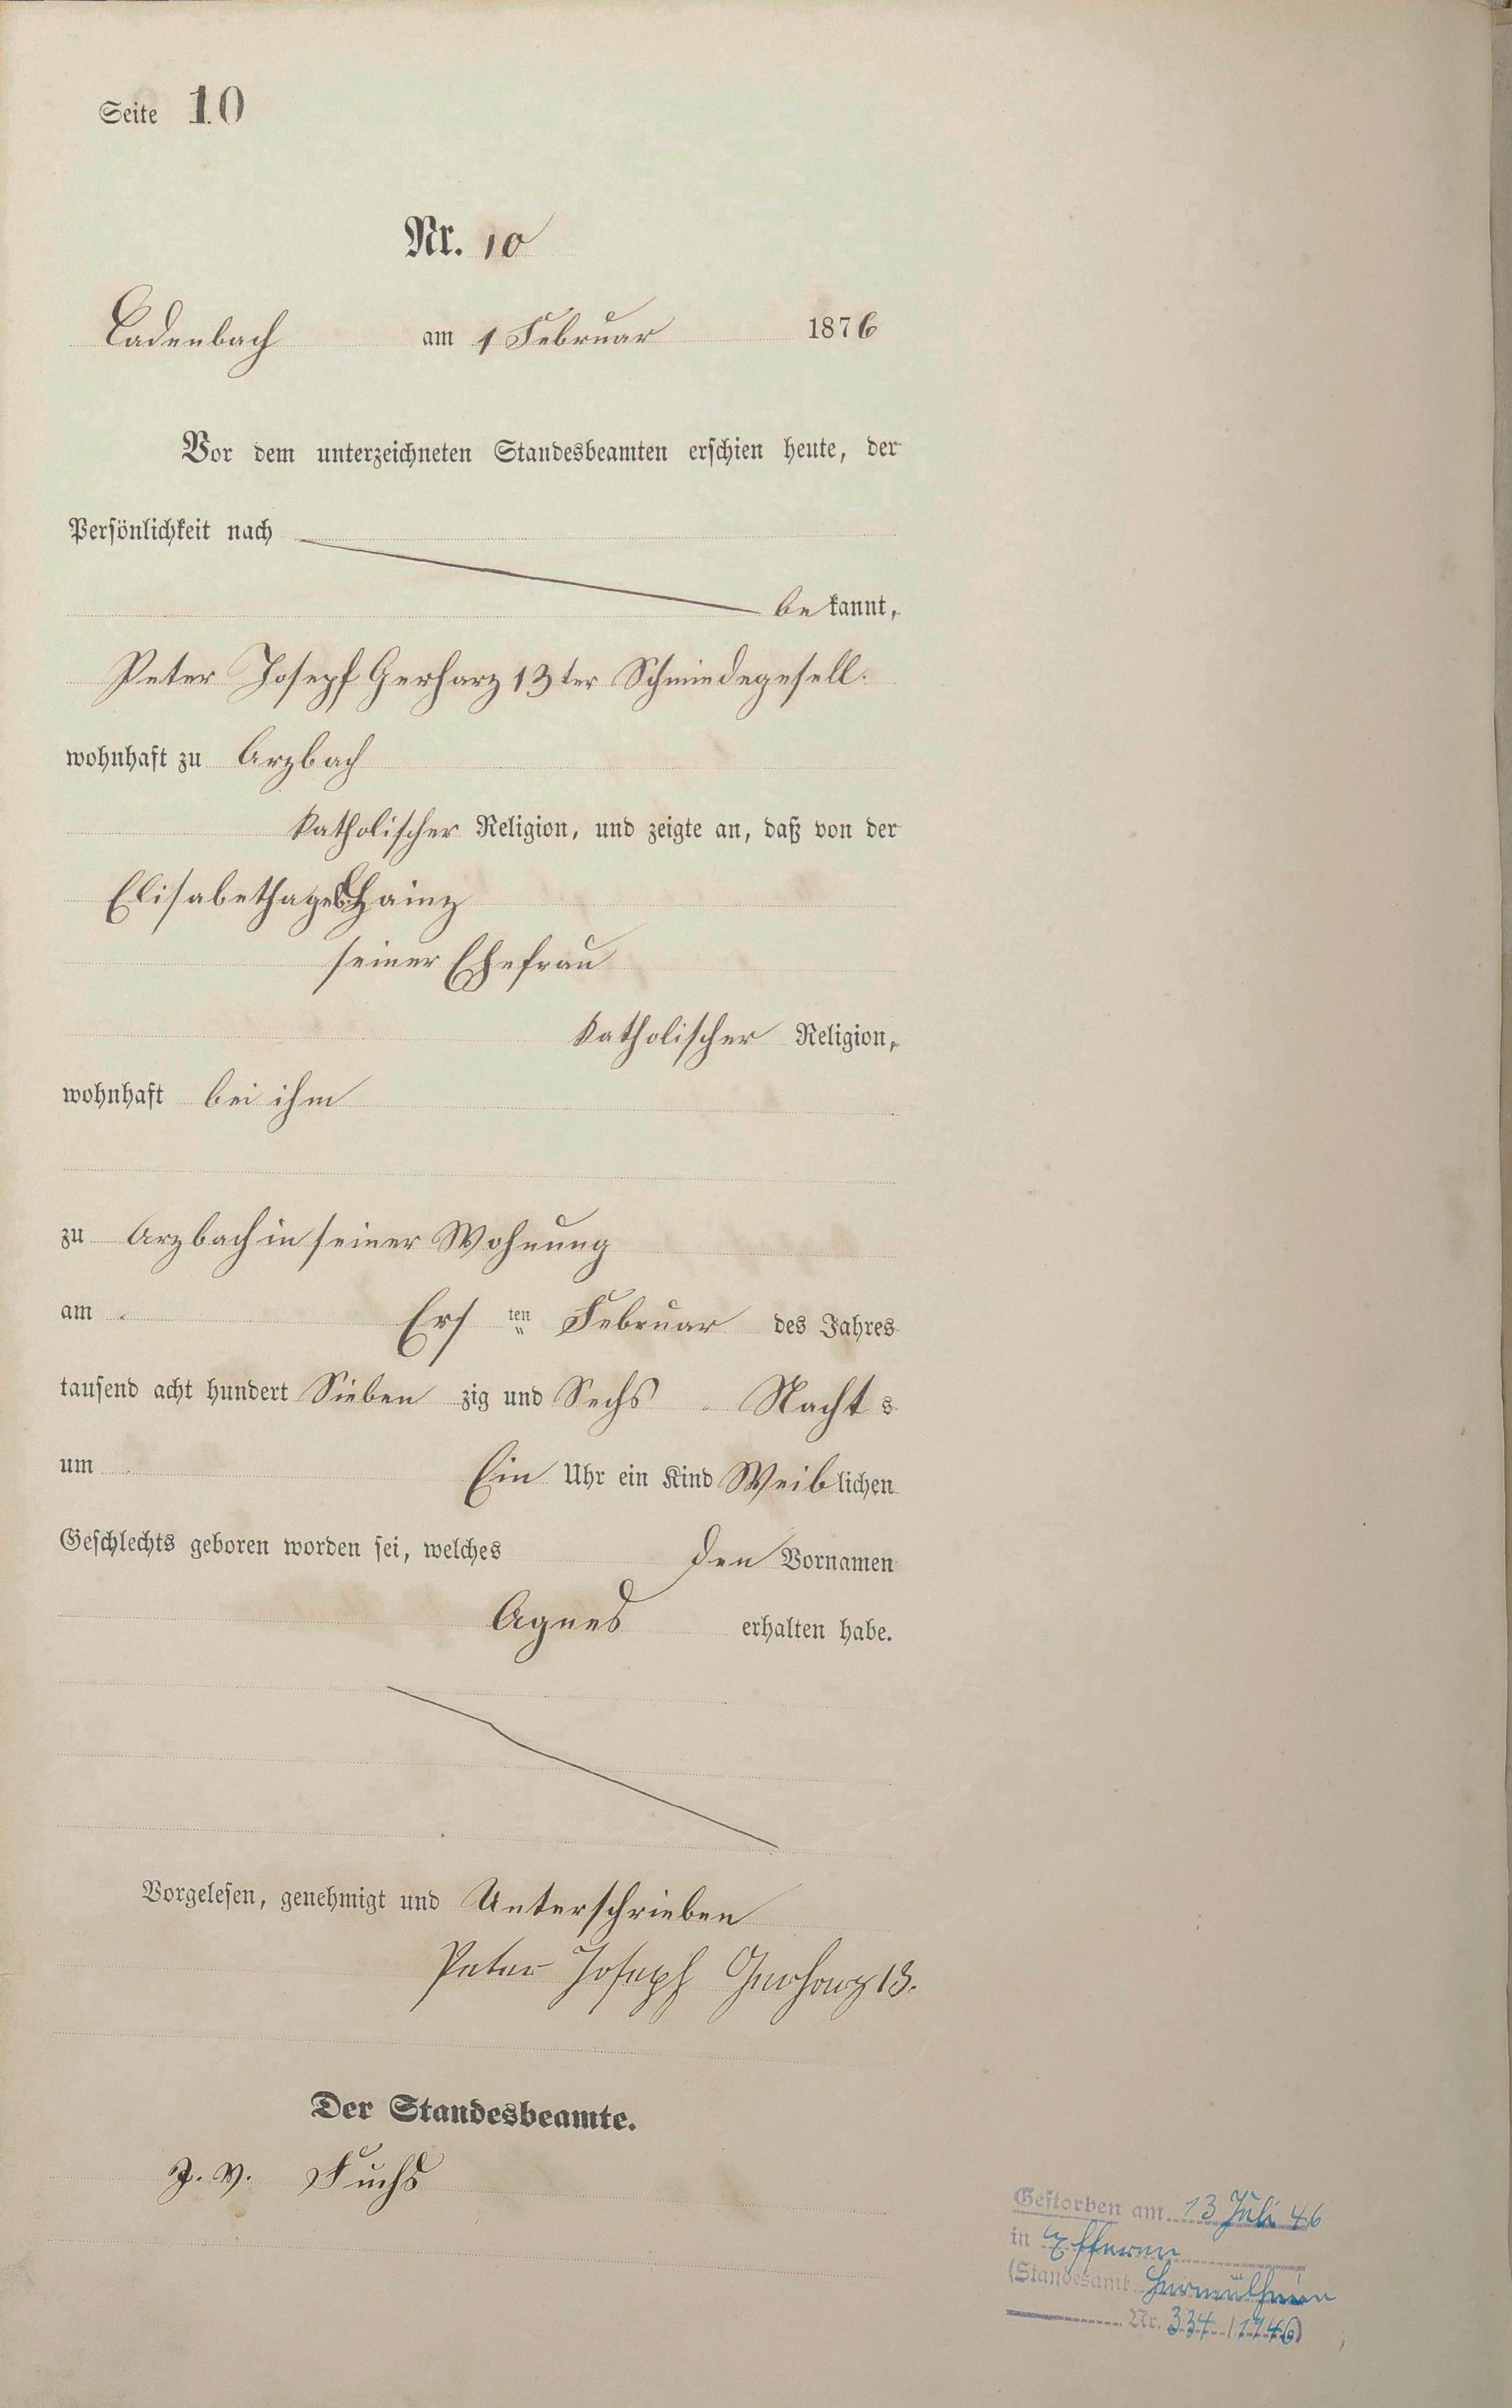 Seite 10
Nr. 10
Cadenbach am 1 Februar 1876
Vor dem unterzeichneten Standesbeamten erschien heute, der
Persönlichkeit nach
bekannt,
Peter Josepf Gerharz 13ter Schmiedegesell.
wohnhaft zu Arzbach
katholischer Religion, und zeigte an, daß von der
Elisabetha geb Hainz
seiner Ehefrau
katholischer Religion,
wohnhaft bei ihm
zu Arzbach in seiner Wohnung
am Ersten Februar des Jahres
tausend acht hundert Siebenzig und Sechs Nachts
um Ein Uhr ein Kind Weiblichen
Geschlechts geboren worden sei, welches den Vornamen
Agnes erhalten habe.
Vorgelesen, genehmigt und Unterschrieben
Peter Joseph Gerharz 13.
Der Standesbeamte.
J. V. Fuchs
Gestorben am 13 Juli 46
in Efferen
(Standesamt Hermülheim
Nr. 334 / 1946)